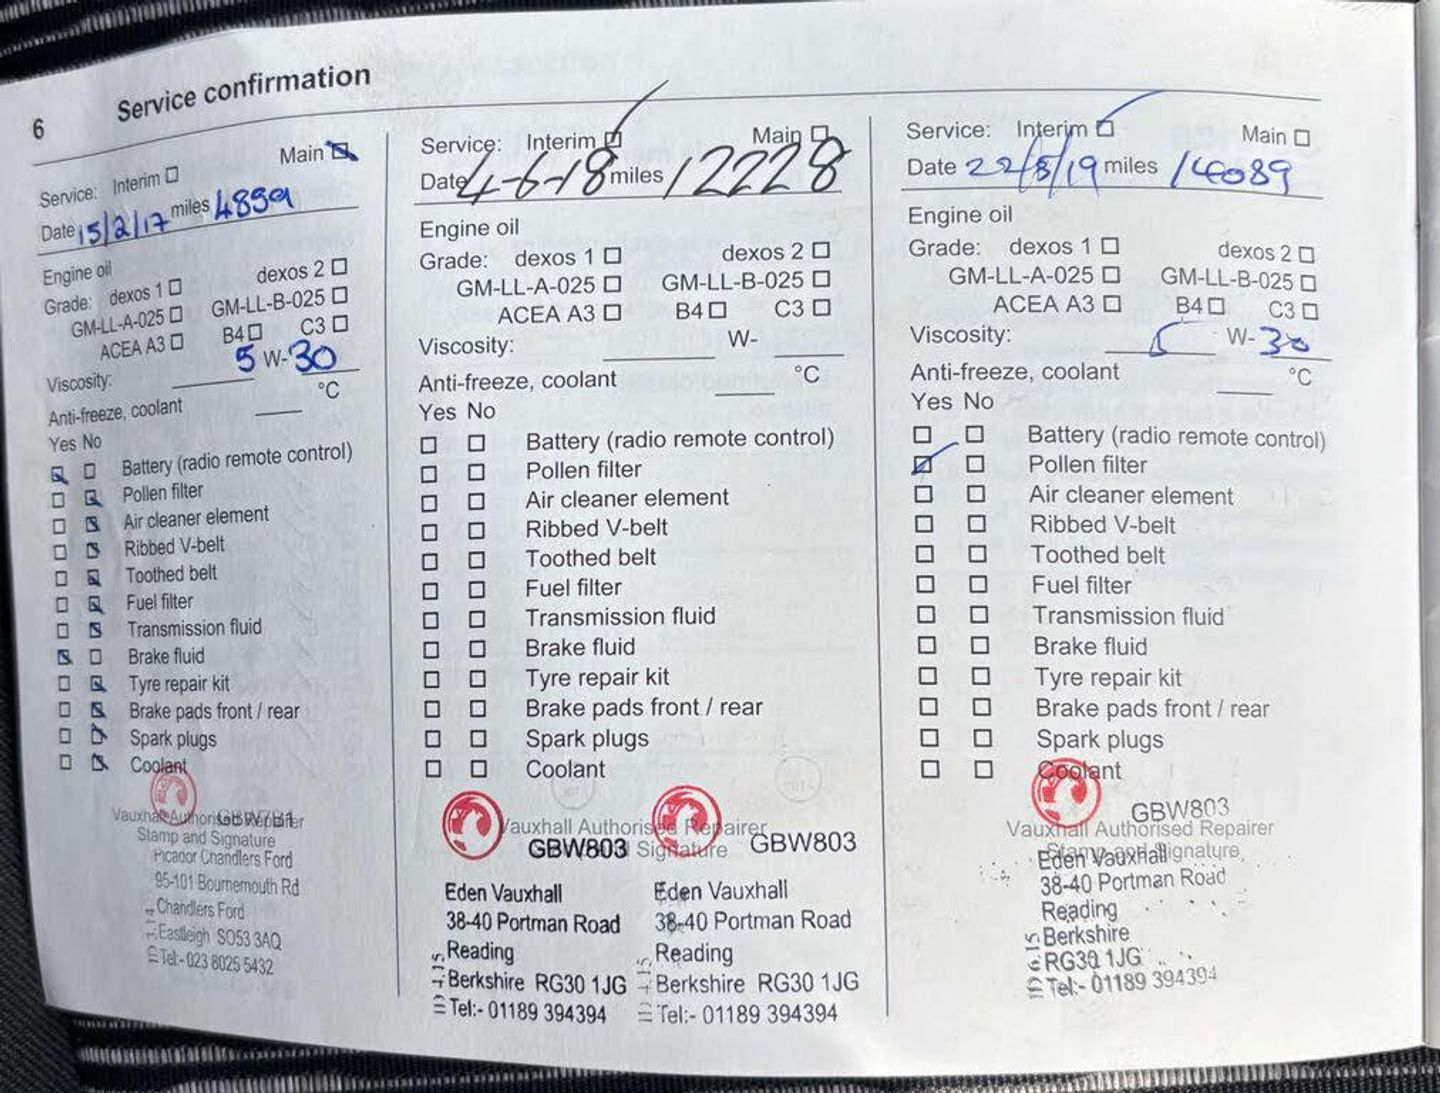 6 Service confirmation
Service: Interim Main
Date 15/2/17 miles 4859
Engine oil
Grade: dexos 1 dexos 2
GM-LL-A-025 GM-LL-B-025
ACEA A3 B4 C3
Viscosity: 5 W-30
Anti-freeze, coolant °C
Yes No
Battery (radio remote control)
Pollen filter
Air cleaner element
Ribbed V-belt
Toothed belt
Fuel filter
Transmission fluid
Brake fluid
Tyre repair kit
Brake pads front / rear
Spark plugs
Coolant
Vauxhall Authorised Repairer
Stamp and Signature
Picador Chandlers Ford
95-101 Bournemouth Rd
Chandlers Ford
Eastleigh SO53 3AQ
Tel:- 023 8025 5432
Service: Interim Main
Date 4-6-18 miles 12228
Engine oil
Grade: dexos 1 dexos 2
GM-LL-A-025 GM-LL-B-025
ACEA A3 B4 C3
Viscosity: W-
Anti-freeze, coolant °C
Yes No
Battery (radio remote control)
Pollen filter
Air cleaner element
Ribbed V-belt
Toothed belt
Fuel filter
Transmission fluid
Brake fluid
Tyre repair kit
Brake pads front / rear
Spark plugs
Coolant
Vauxhall Authorised Repairer
Signature
GBW803 GBW803
Eden Vauxhall Eden Vauxhall
38-40 Portman Road 38-40 Portman Road
Reading Reading
Berkshire RG30 1JG Berkshire RG30 1JG
Tel:- 01189 394394 Tel:- 01189 394394
Service: Interim Main
Date 22/8/19 miles 14089
Engine oil
Grade: dexos 1 dexos 2
GM-LL-A-025 GM-LL-B-025
ACEA A3 B4 C3
Viscosity: 5 W-30
Anti-freeze, coolant °C
Yes No
Battery (radio remote control)
Pollen filter
Air cleaner element
Ribbed V-belt
Toothed belt
Fuel filter
Transmission fluid
Brake fluid
Tyre repair kit
Brake pads front / rear
Spark plugs
Coolant
GBW803
Vauxhall Authorised Repairer
Stamp and Signature
Eden Vauxhall
38-40 Portman Road
Reading
Berkshire
RG30 1JG
Tel:- 01189 394394